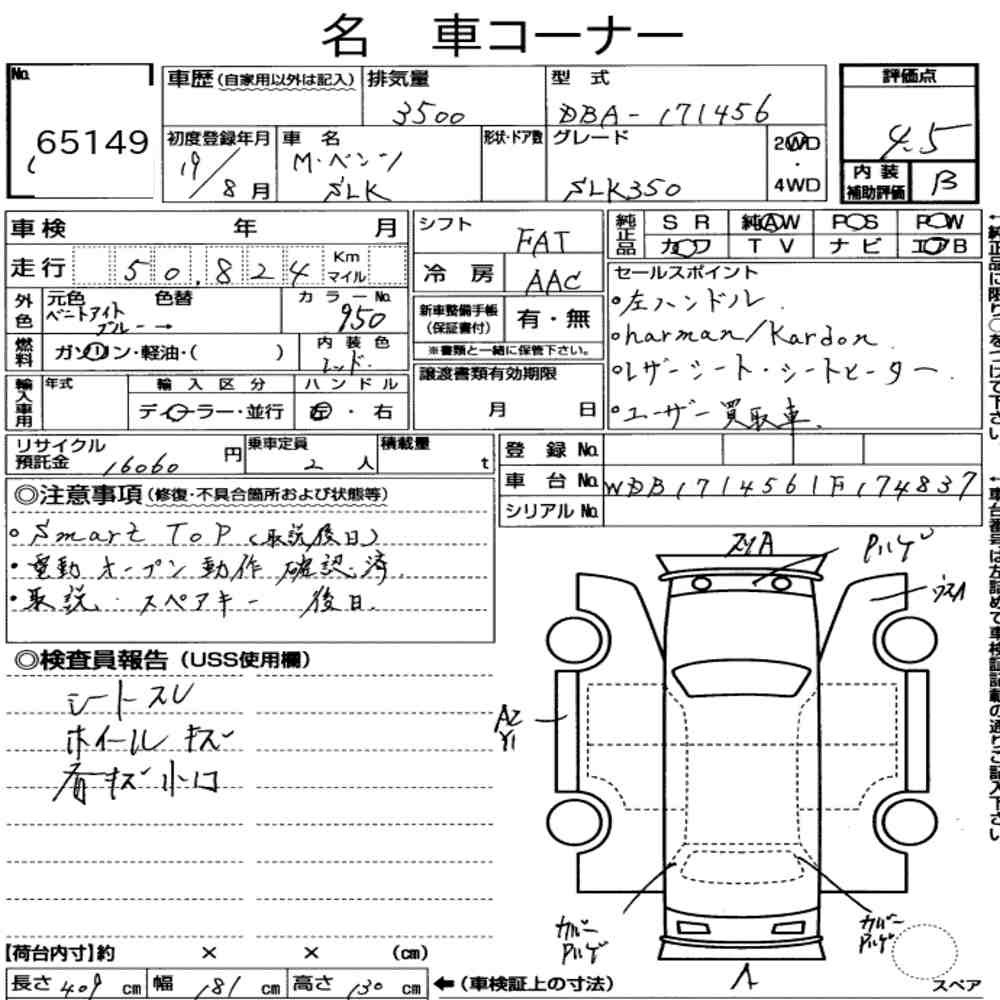 名 車コーナー
No.
65149
車歴(自家用以外は記入)
排気量
3500
型 式
DBA-171456
評価点
4.5
初度登録年月
19/8月
車 名
M・ベンツ
SLK
形状・ドア数
グレード
SLK350
2WD
・
4WD
内 装
補助評価
B
車検 年 月
シフト
FAT
純正品
SR 純AW POS POW
カワ TV ナビ エアB
走行 50,824 Km
マイル
冷 房
AAC
セールスポイント
・左ハンドル.
・harman/Kardon.
・レザーシート・シートヒーター.
・ユーザー買取車.
外色
元色 色替
ベニトアイト
ブルー→
カラーNo.
950
新車整備手帳
(保証書付)
有・無
※書類と一緒に保管下さい。
燃料
ガソリン・軽油・( )
内装色
レッド.
譲渡書類有効期限
月 日
輸入車用
年式
輸入区分
ディーラー・並行
ハンドル
左・右
リサイクル
預託金 16060 円
乗車定員
2 人
積載量
t
登 録 No.
車 台 No. WDB1714561F174837
シリアル No.
◎注意事項(修復・不具合箇所および状態等)
・Smart ToP(取説後日)
・電動オープン動作確認済.
・取説.スペアキー 後日.
◎検査員報告(USS使用欄)
シートスレ
ホイールキズ
看キズ小口
スリA
Pハゲ
ウスA
A2
Y1
カバー
Pハゲ
カバー
Pハゲ
【荷台内寸】約 × × (cm)
長さ 409 cm 幅 181 cm 高さ 130 cm
←(車検証上の寸法)
スペア
←純正品に限り○をつけて下さい。
←車台番号は左詰めで車検証記載の通りご記入下さい。